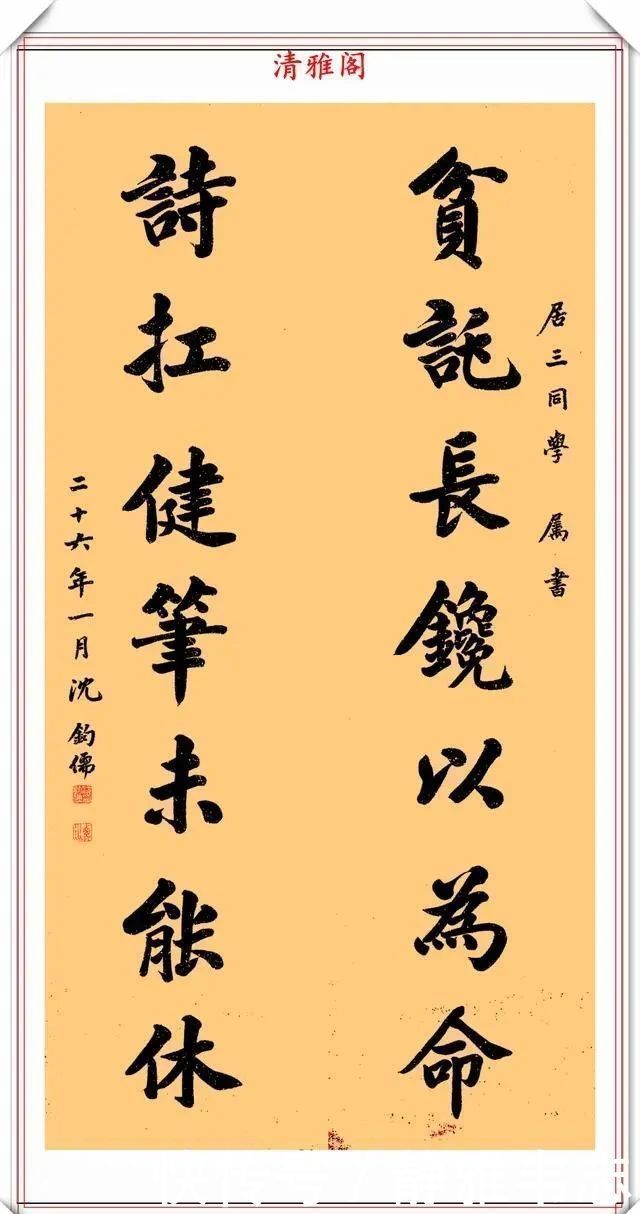 清雅阁
居三同學 属書
貧託長鑱以為命
詩扛健筆未能休
二十六年一月沈鈞儒